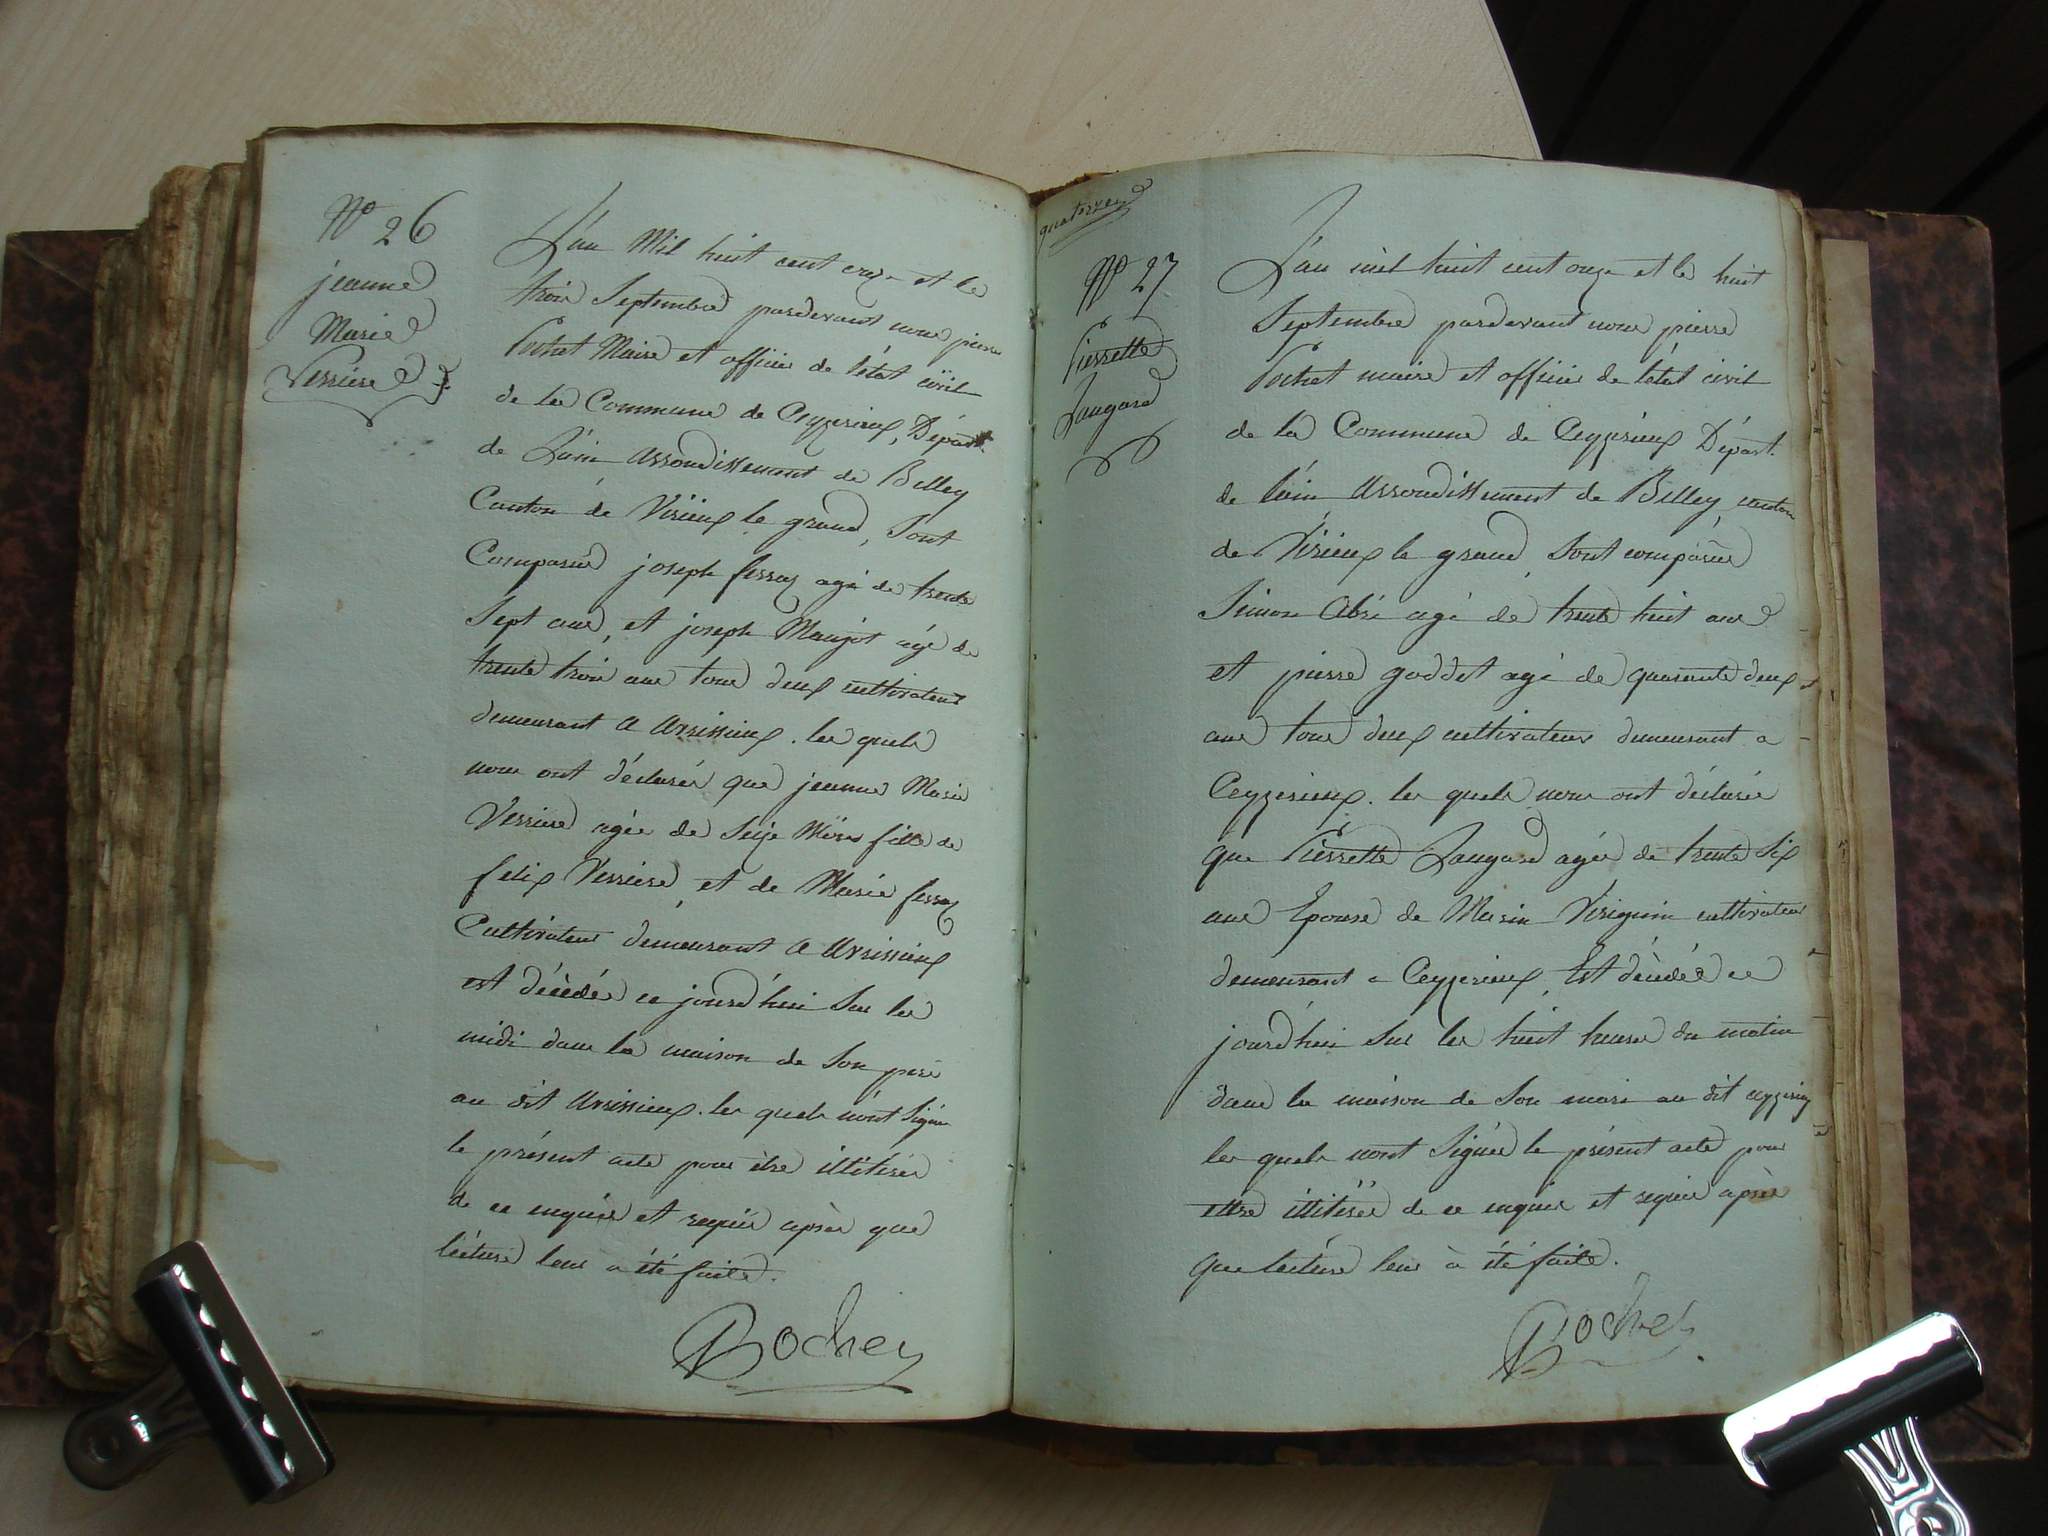 N° 26
jeanne
Marie
Verriere
L'an Mil huit cent onze et le
trois Septembre pardevant nous pierre
Pochet Maire et officier de l'état civil
de la Commune de Ceyzerieux, Départ.
de L'ain arrondissement de Belley
Canton de Virieux le grand, Sont
Comparus joseph ferraz agé de trente
Sept ans, et joseph Maujot agé de
trente trois ans tous deux cultivateurs
demeurant a avrissieux. les quels
nous ont déclarés que jeanne Marie
Verriere agée de Seize Mois fille de
felix Verriere, et de Marie ferraz
Cultivateur demeurant a avrissieux
est décédée ce jourd'hui Sur les
midi dans la maison de Son pere
au dit avrissieux. les quels n'ont Signé
le présent acte pour être illitérés
de ce enquis et requis après que
lécture leur a été faite.
Pochet
quatorze
N° 27
Pierrette
Laugard
L'an mil huit cent onze et le huit
Septembre pardevant nous pierre
Pochet maire et officier de l'état civil
de la Commune de Ceyzerieux Départ.
de l'ain arrondissement de Belley canton
de Virieux le grand, Sont comparus
Simon Abri agé de trente huit ans
et pierre goddet agé de quarante deux
ans tous deux cultivateurs demeurant a
Ceyzerieux. les quels nous ont déclarés
que Pierrette Laugard agée de trente Six
ans Epouse de Marin Virignin cultivateur
demeurant a Ceyzerieux, Est décédée ce
jourd'hui Sur les huit heures du matin
dans la maison de Son mari au dit ceyzerieux
les quels n'ont Signés le présent acte pour
ettre illitérés de ce enquis et requis après
que lecture leur à été faite.
Pochet